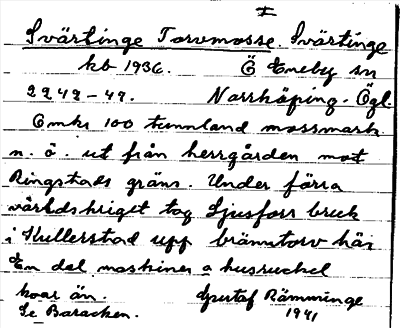 I
Svärtinge Torvmosse. Svärtinge
kb 1936. Ö Eneby sn
2242-49. Norrköping. Ögl.
Omkr 100 tunnland mossmark
n. ö. ut från herrgården mot
Ringstads gräns. Under förra
världskriget tog Ljusfors bruk
i Kullerstad upp brämntorv här
En del maskiner o husruckel
kvar än. Gustaf Rämminge
Se Baracken. 1941